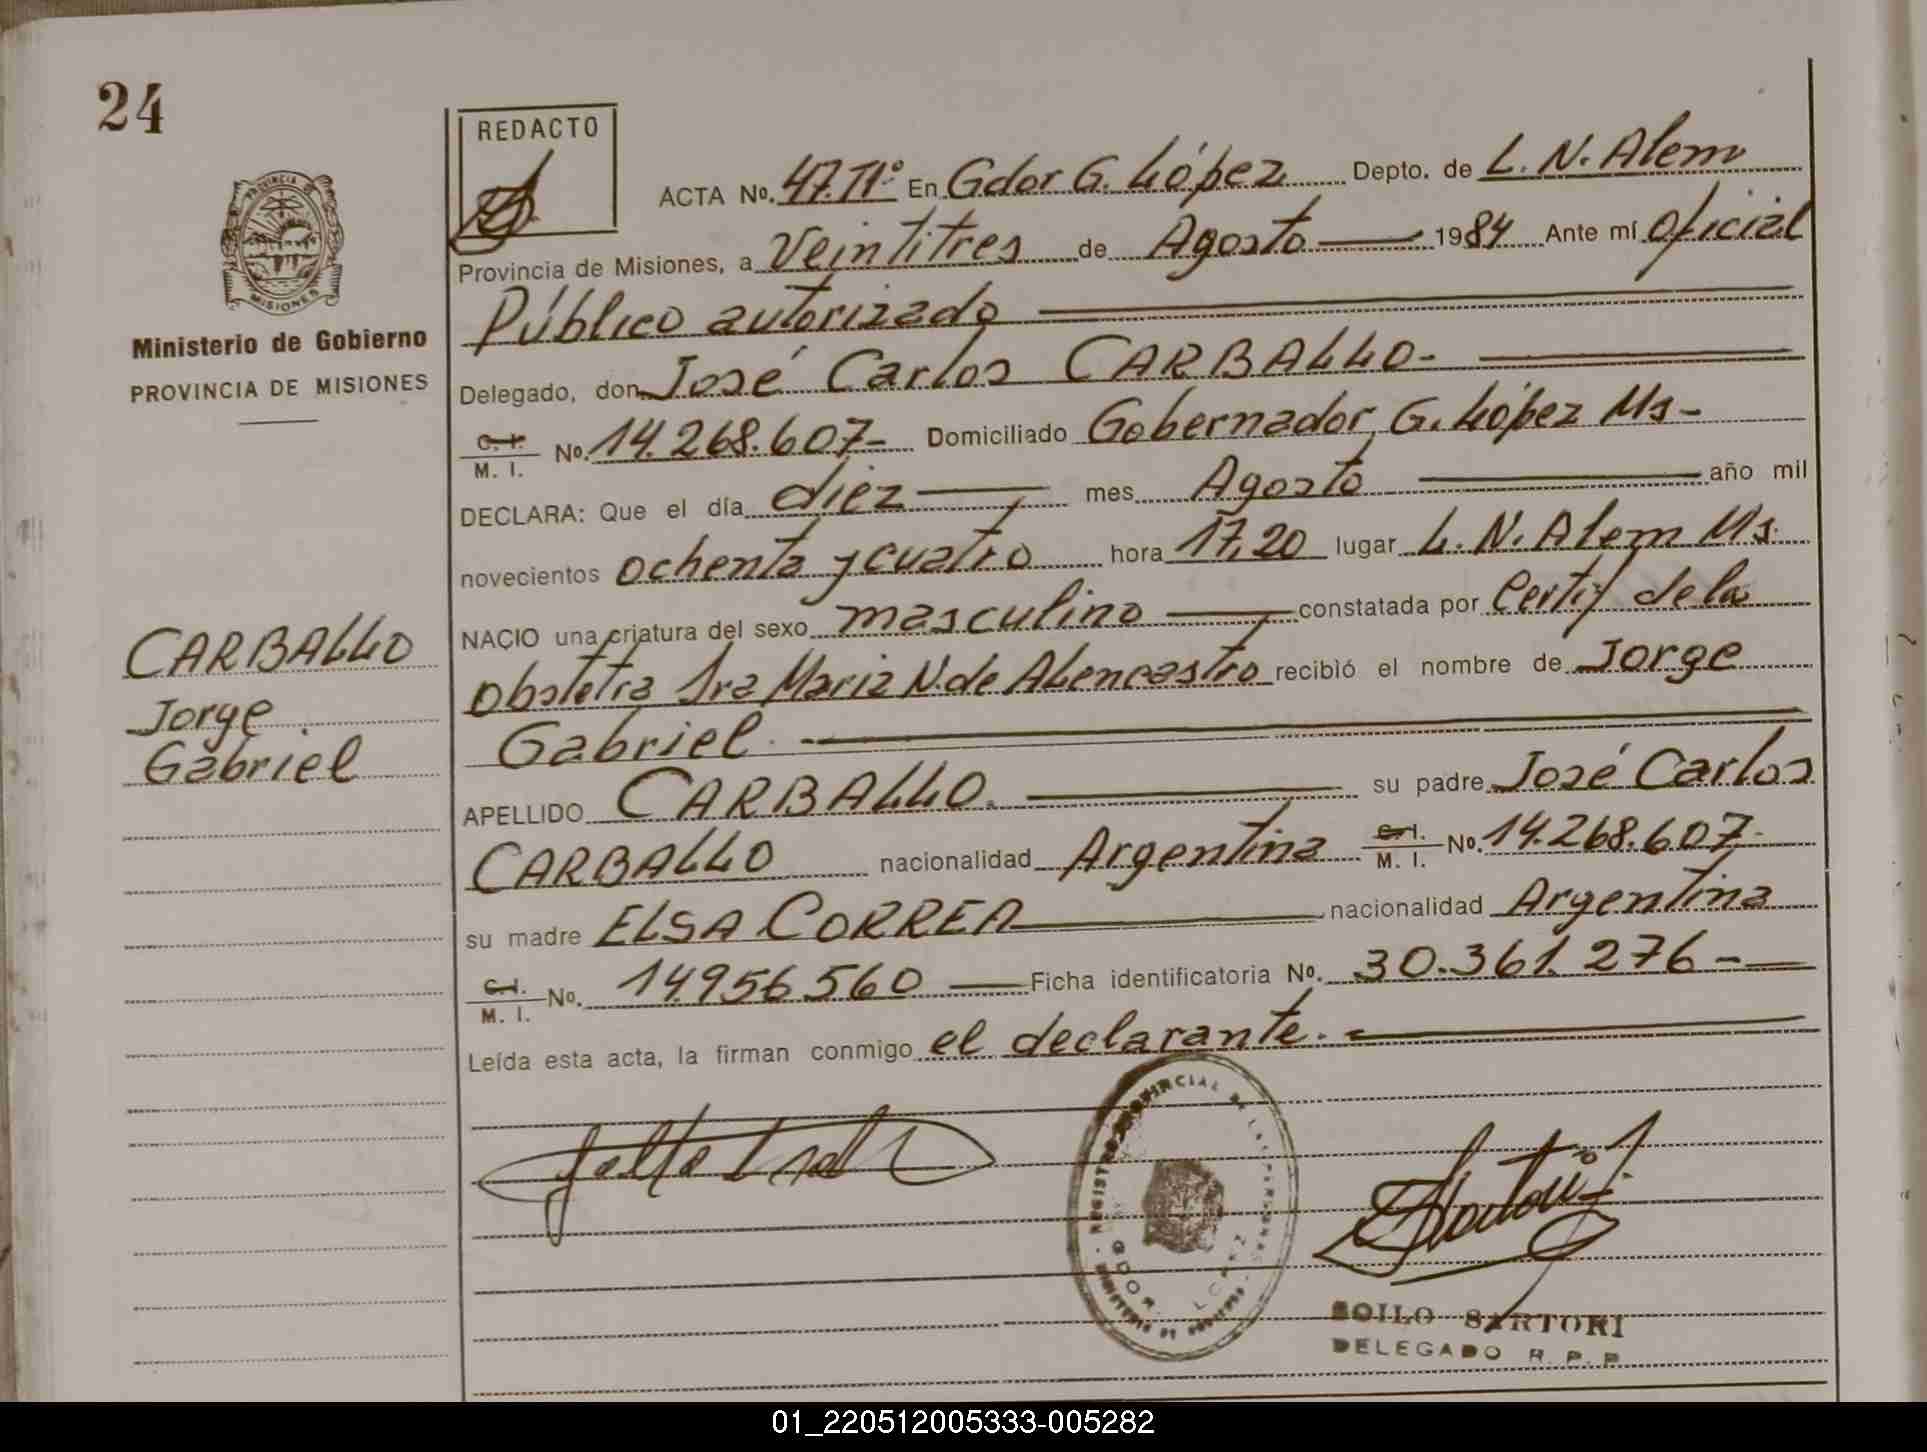 24
REDACTO
ACTA No. 47.Tº En Gdor G. López Depto. de L. N. Alem
Provincia de Misiones, a Veintitres de Agosto 1984 Ante mí Oficial
Público autorizado
Delegado, don José Carlos CARBALLO-
C. I. M. I. No. 14.268.607- Domiciliado Gobernador G. López Ms-
DECLARA: Que el día diez mes Agosto año mil
novecientos ochenta y cuatro hora 17,20 lugar L. N. Alem Ms.
NACIO una criatura del sexo masculino constatada por Certif de la
Obstetra Sra Maria N. de Alencastro recibió el nombre de Jorge
Gabriel.
APELLIDO CARBALLO. su padre José Carlos
CARBALLO nacionalidad Argentina C. I. M. I. No. 14.268.607-
su madre ELSA CORREA nacionalidad Argentina
C. I. M. I. No. 14956560 Ficha identificatoria No. 30.361.276-
Leída esta acta, la firman conmigo el declarante.
PROVINCIA DE MISIONES
Ministerio de Gobierno
PROVINCIA DE MISIONES
CARBALLO
Jorge
Gabriel
REGISTRO PROVINCIAL DE LAS PERSONAS
GDOR. LOPEZ
ZOILO SARTORI
DELEGADO R. P. P.
01_220512005333-005282